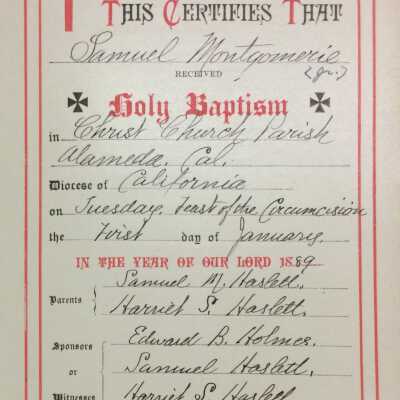 THIS CERTIFIES THAT
Samuel Montgomerie
RECEIVED (Jr.)
Holy Baptism
in Christ Church Parish
Alameda, Cal.
Diocese of California
on Tuesday, Feast of the Circumcision
the First day of January
IN THE YEAR OF OUR LORD 1889
Samuel M. Haslett.
Parents
Harriet S. Haslett.
Sponsors Edward B. Holmes.
or Samuel Haslett.
Witnesses Harriet S. Haslett